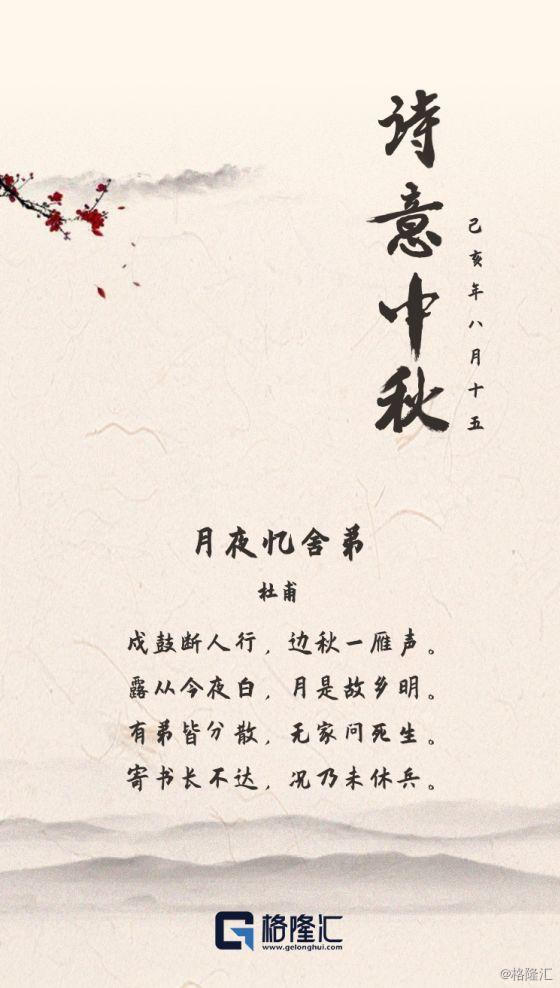 诗意中秋
己亥年八月十五
月夜忆舍弟
杜甫
戍鼓断人行，边秋一雁声。
露从今夜白，月是故乡明。
有弟皆分散，无家问死生。
寄书长不达，况乃未休兵。
格隆汇
www.gelonghui.com
@格隆汇